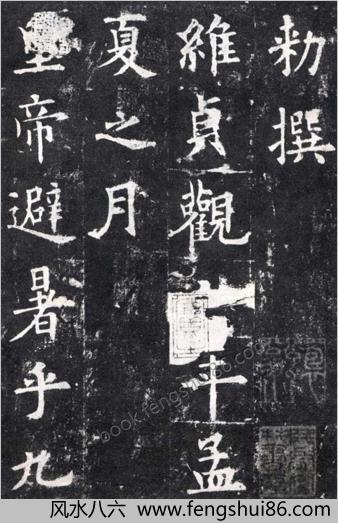 勑撰
維貞觀年孟
夏之月
皇帝避暑乎九
book.fengshui86.com
风水八六 www.fengshui86.com